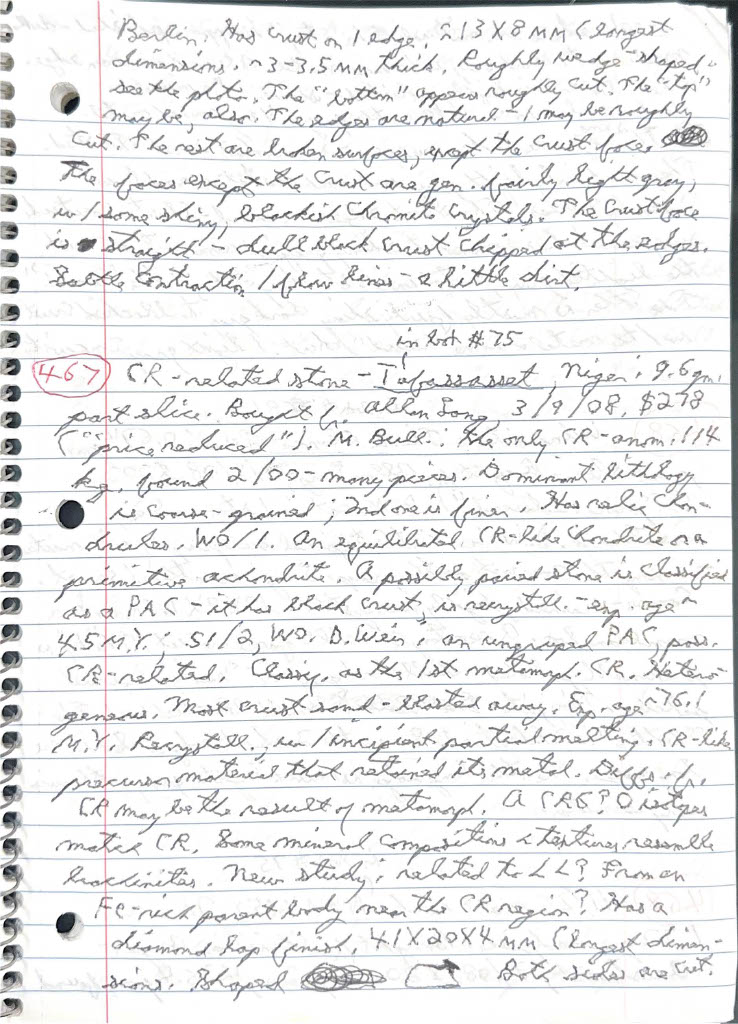 Berlin. Has crust on 1 edge, ~13X8 MM (longest
dimensions. ~3-3.5 MM thick. Roughly wedge-shaped,
see the photo. The "bottom" appears roughly cut. The "top"
may be, also. The edges are natural - 1 may be roughly
cut. The rest are broken surfaces, except the crust face.
The faces except the crust are gen. fairly light gray,
w/some shiny, blackish chromite crystals. The crust face
is straight - dull black crust chipped at the edges.
Subtle contraction/flow lines - a little dirt.
in lot #75
467 CR-related stone - Tafassasset, Niger: 9.6 gm.
part slice. Bought fr. Allan Lang, 3/9/08, $278
("price reduced"). M. Bull.: the only CR-anom. 114
kg, found 2/00 - many pieces. Dominant lithology
is coarse-grained; 2nd one is finer. Has relic chon-
drules. W0/1. An equilibrated CR-like chondrite or a
primitive achondrite. A possibly paired stone is classified
as a PAC - it has black crust, is recrystall. - exp. age ~
45 M.Y.; S1/2, W0. D. Wein: an ungrouped PAC, poss.
CR-related. Classif. as the 1st metamorph. CR. Hetero-
geneous. Most crust sand-blasted away. Exp. age ~76.1
M.Y. Recrystall., w/incipient partial melting. CR-like
precursor material that retained its metal. Diffs. fr.
CR may be the result of metamorph. A CR6? O isotopes
match CR. Some mineral compositions & textures resemble
brachinites. New study: related to LL? From an
Fe-rich parent body near the CR region? Has a
diamond lap finish, 41X20X4 MM (longest dimen-
sions. Shaped Both sides are cut.